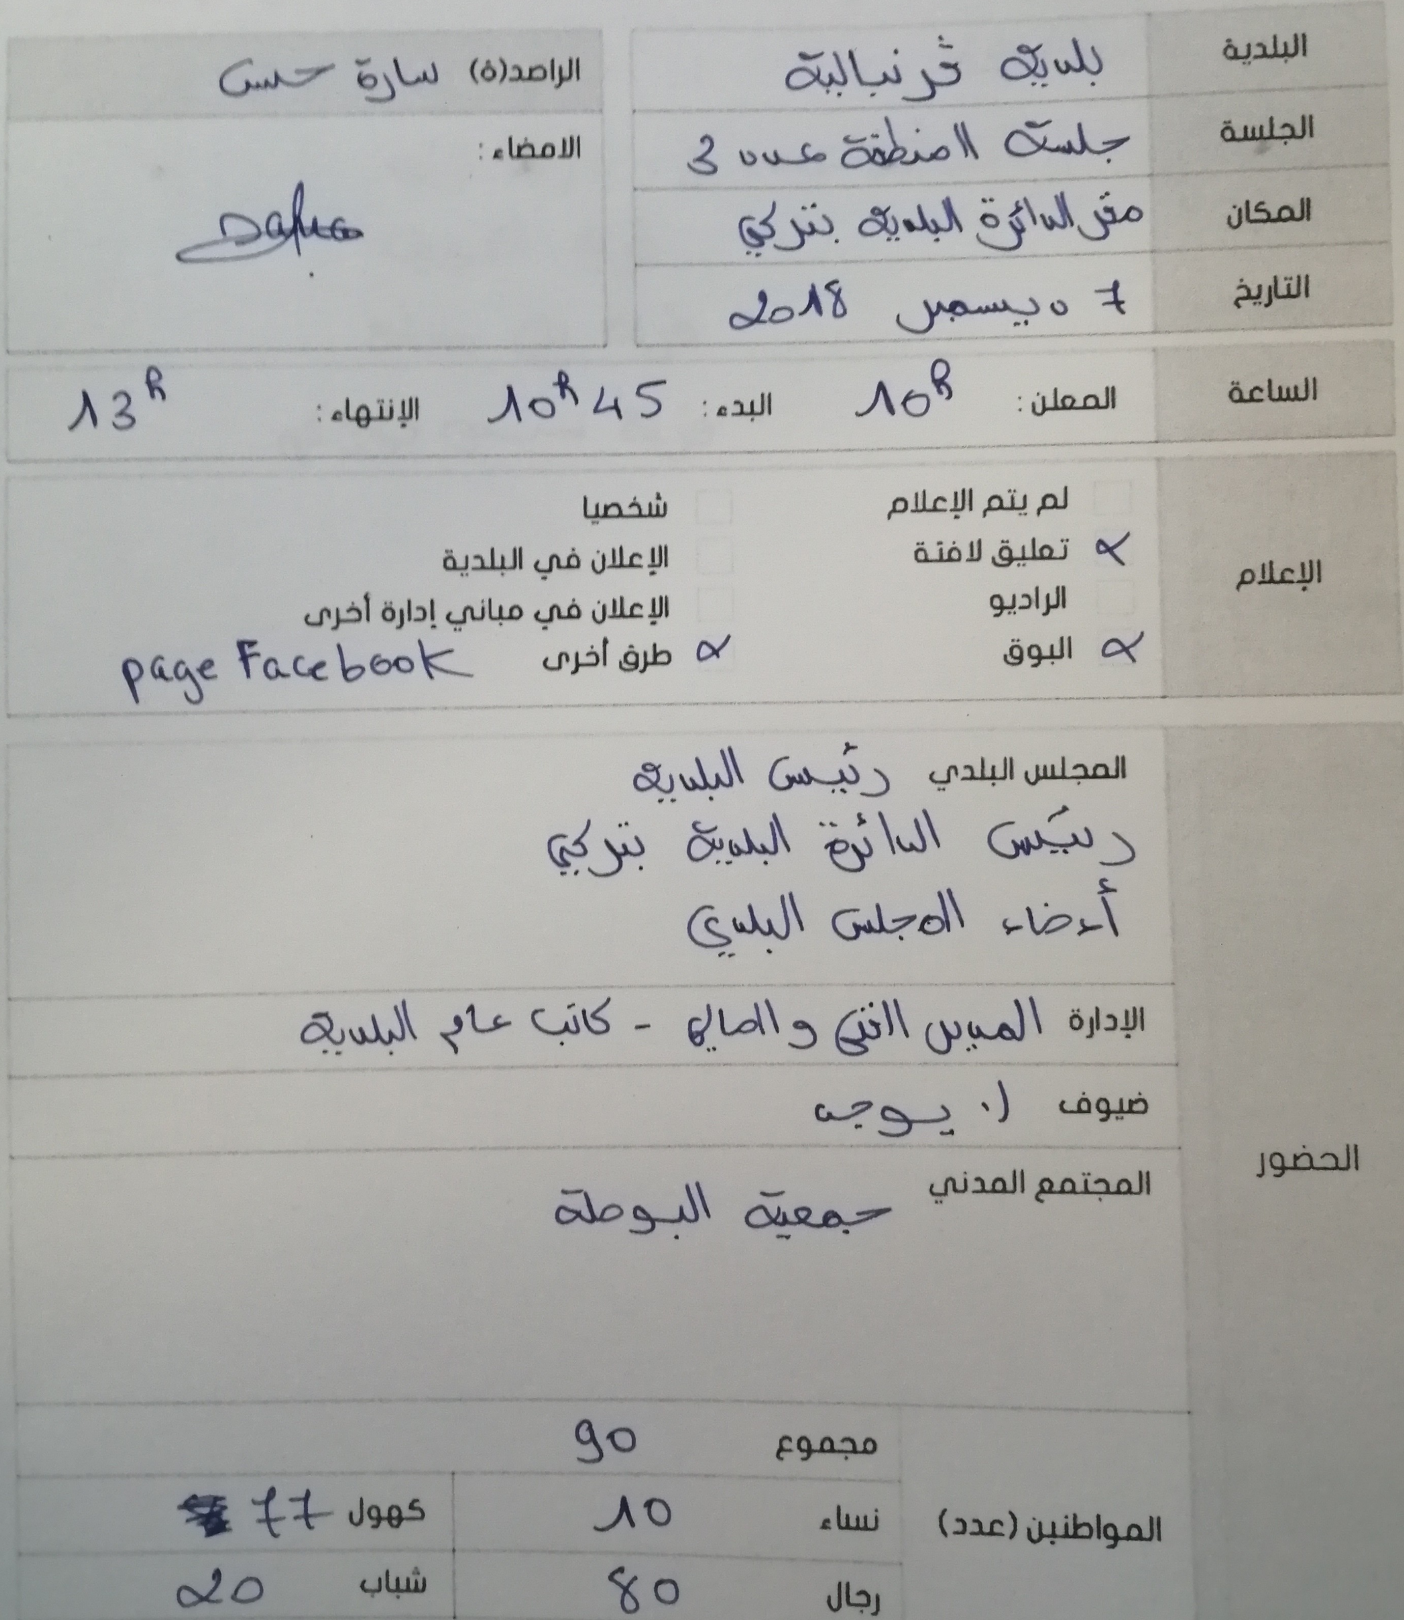 البلدية بلدية ڨرنبالية
الراصد(ة) سارة حسن
الجلسة جلسة المنطقة عدد 3
الامضاء:
المكان مقر الدائرة البلدية بتركي
التاريخ 7 ديسمبر 2018
الساعة المعلن: 10h البدء: 10h45 الإنتهاء: 13h
الإعلام
لم يتم الإعلام شخصيا
تعليق لافتة الإعلان في البلدية
الراديو الإعلان في مباني إدارة أخرى
البوق طرق أخرى page Facebook
الحضور
المجلس البلدي رئيس البلدية
رئيس الدائرة البلدية بتركي
أعضاء المجلس البلدي
الإدارة المدير الفني والمالي - كاتب عام البلدية
ضيوف لا يوجد
المجتمع المدني جمعية البوصلة
المواطنين (عدد)
مجموع 90
نساء 10 كهول 77
رجال 80 شباب 20